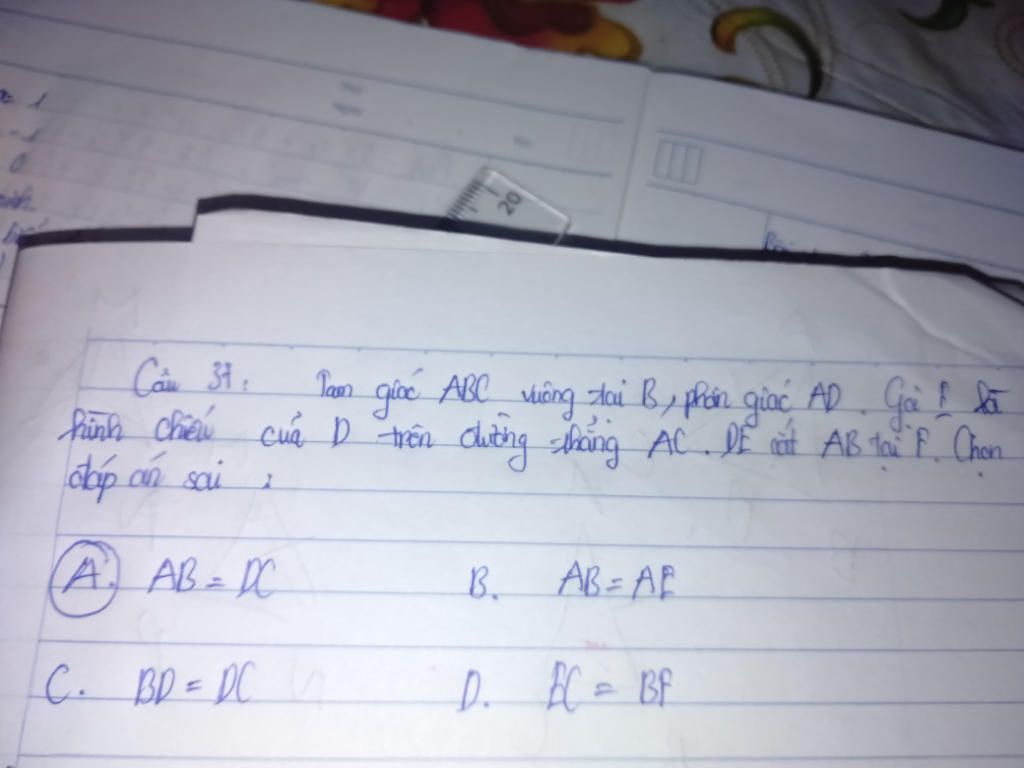 x= 1
-1
0
20
Câu 37: Tam giác ABC vuông tại B, phân giác AD. Gọi E là
hình chiếu của D trên đường thẳng AC. DE cắt AB tại F. Chọn
đáp án sai :
A. AB = DC B. AB = AE
C. BD = DC D. EC = BF